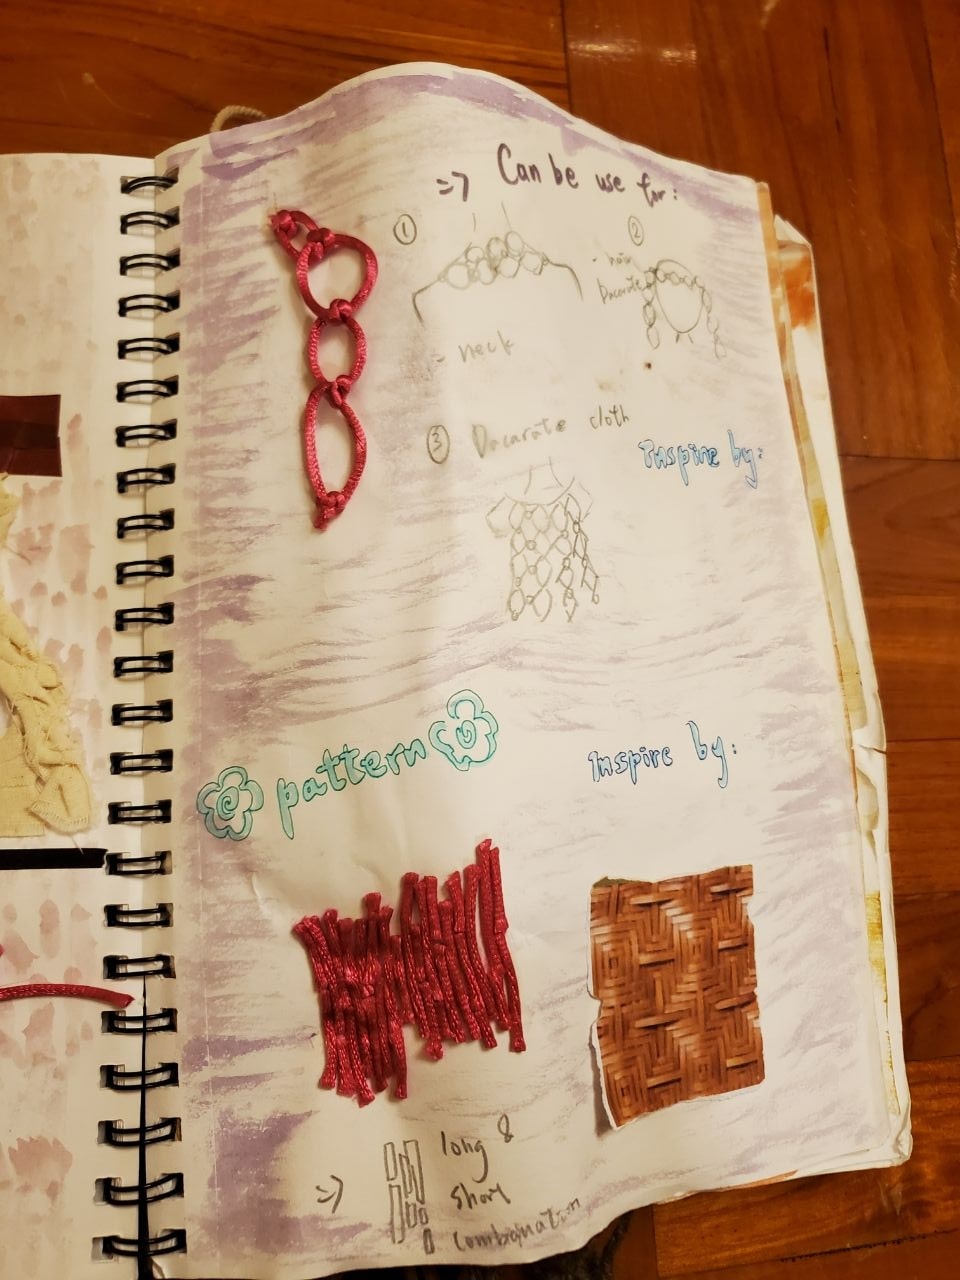 => Can be use for:
①
②
- hair
Dacarate
- neck
③ Dacarate cloth
Inspire by:
pattern
Inspire by:
=> long &
short
combqnation